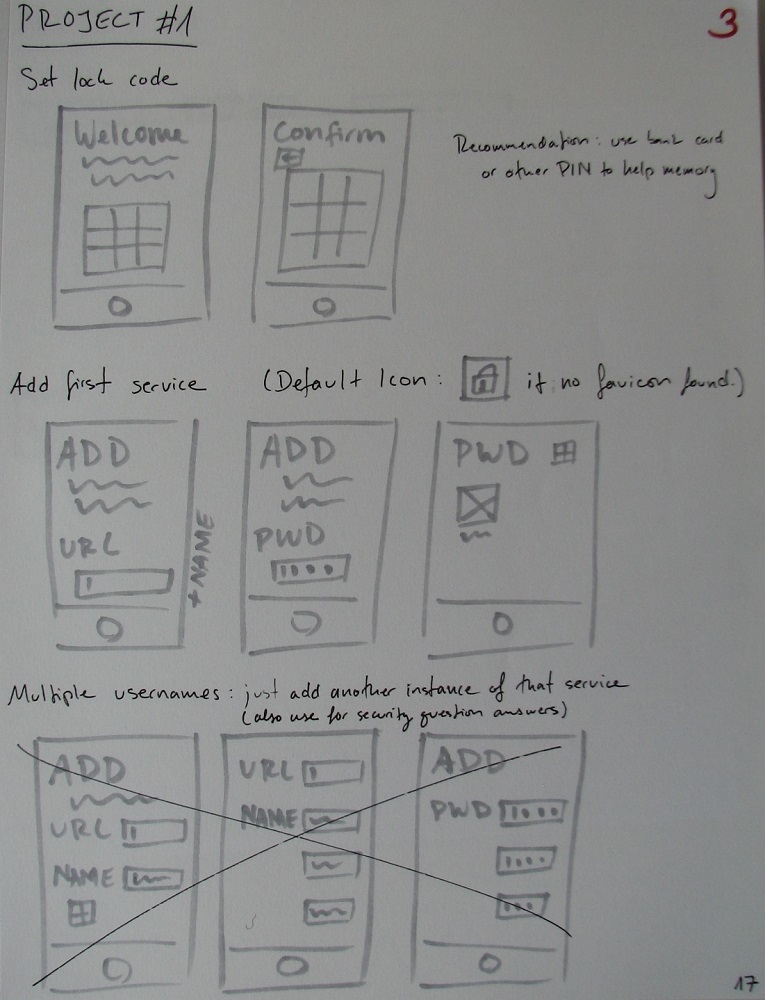 PROJECT #1
3
Set lock code
Welcome
Confirm
Recommendation: use bank card
or other PIN to help memory
Add first service (Default Icon: if no favicon found.)
ADD
URL
+ NAME
ADD
PWD
PWD
Multiple usernames: just add another instance of that service
(also use for security question answers)
ADD
URL
NAME
URL
NAME
ADD
PWD
17